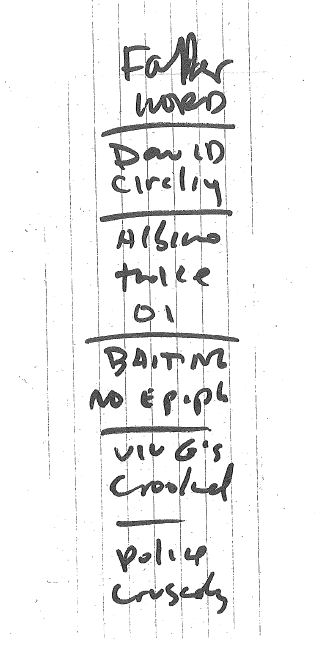 Father
WORD
David
Circling
Albino
twice
01
BAITING
NO Epiph
VIV G's
Crooked
police